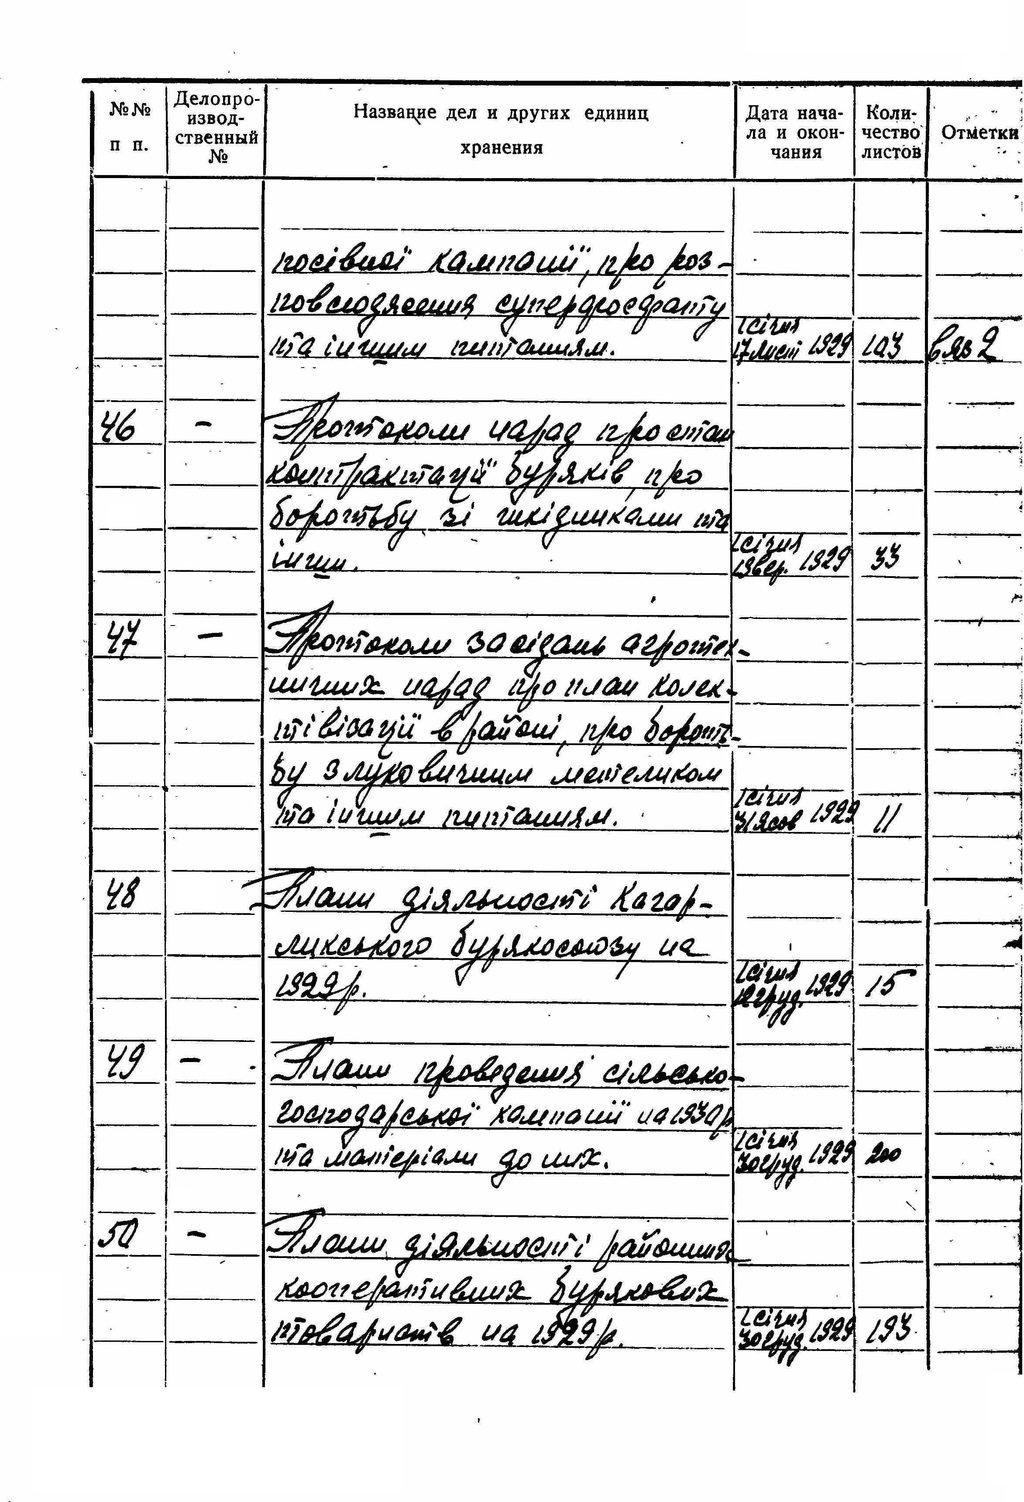 №№ п п.
Делопро-
извод-
ственный
№
Название дел и других единиц
хранения
Дата нача-
ла и окон-
чания
Коли-
чество
листов
Отметки
посівної кампанії, про роз-
повсюдження суперфосфату
та іншим питанням.
1 січня
17 лист 1929
103
вяз 2
46 — Протоколи нарад про стан
контрактації буряків, про
боротьбу зі шкідниками та
інши.
1 січня
19 вер. 1929
33
47 — Протоколи засідань агротех-
ничних нарад про план колек-
тівізації в районі, про бороть-
бу з луковичним метеликом
та іншим питанням.
1 січня
31 жов 1929
11
48 Плани діяльності Кагар-
ликського бурякосоюзу на
1929 р.
1 січня
12 груд. 1929
15
49 — Плани проведення сільсько-
господарської кампанії на 1930 р
та матеріали до них.
1 січня
30 груд. 1929
200
50 — Плани діяльності районних
кооперативних бурякових
товариств на 1929 р.
1 січня
30 груд. 1929
193